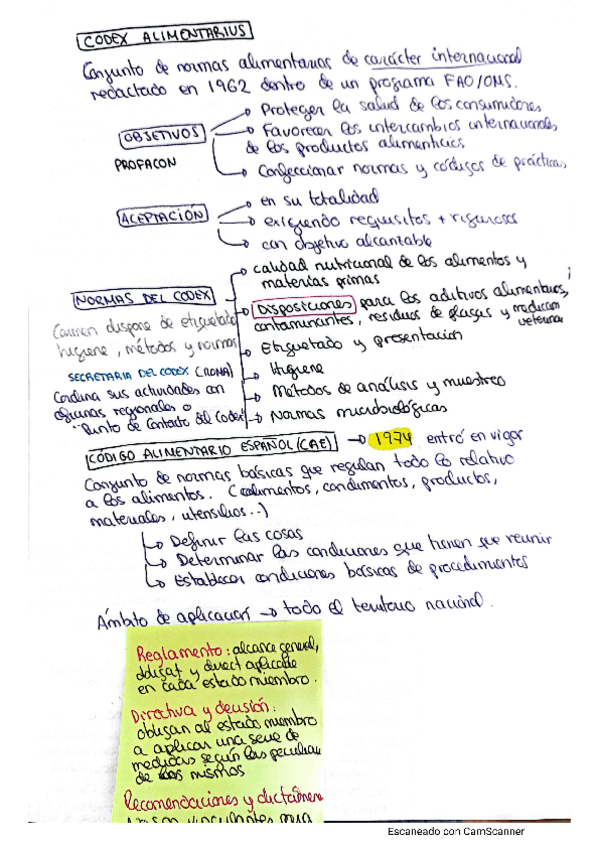 CODEX ALIMENTARIUS
Conjunto de normas alimentarias de carácter internacional
redactado en 1962 dentro de un programa FAO/OMS.
OBJETIVOS
PROFACON
Proteger la salud de los consumidores
Favorecer los intercambios internacionales
de los productos alimenticios
Confeccionar normas y códigos de prácticas
ACEPTACIÓN
en su totalidad
exigiendo requisitos + rigurosos
con objetivo alcanzable
NORMAS DEL CODEX
Carmen dispone de etiquetado
higiene, métodos y normas
SECRETARIA DEL CODEX (ROMA)
Coordina sus actividades con
oficinas regionales o
"Punto de Contacto del Codex"
calidad nutricional de los alimentos y
materias primas
Disposiciones para los aditivos alimentarios,
contaminantes, residuos de plagas y medicam
veterina
Etiquetado y presentación
Higiene
Métodos de análisis y muestreo
Normas microbiológicas
CÓDIGO ALIMENTARIO ESPAÑOL (CAE) → 1974 entró en vigor
Conjunto de normas básicas que regulan todo lo relativo
a los alimentos. (condimentos, productos,
materiales, utensilios..)
Definir las cosas
Determinar las condiciones que tienen que reunir
Establecer condiciones básicas de procedimientos
Ámbito de aplicación → todo el territorio nacional.
Reglamento: alcance general,
obligat y direct aplicable
en cada estado miembro.
Directiva y decisión:
obligan al estado miembro
a aplicar una serie de
medidas según las peculiari
de los mismos
Recomendaciones y dictámene
Escaneado con CamScanner